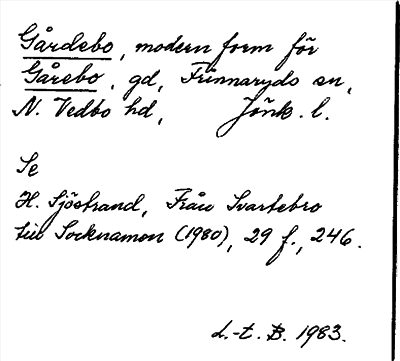 Gårdebo, modern form för
Gårebo, gd, Frinnaryds sn,
N. Vedbo hd, Jönk. l.
Se
H. Sjöstrand, Från Svartebro
till Socknamon (1980), 29 f., 246.
d.-t. B. 1983.